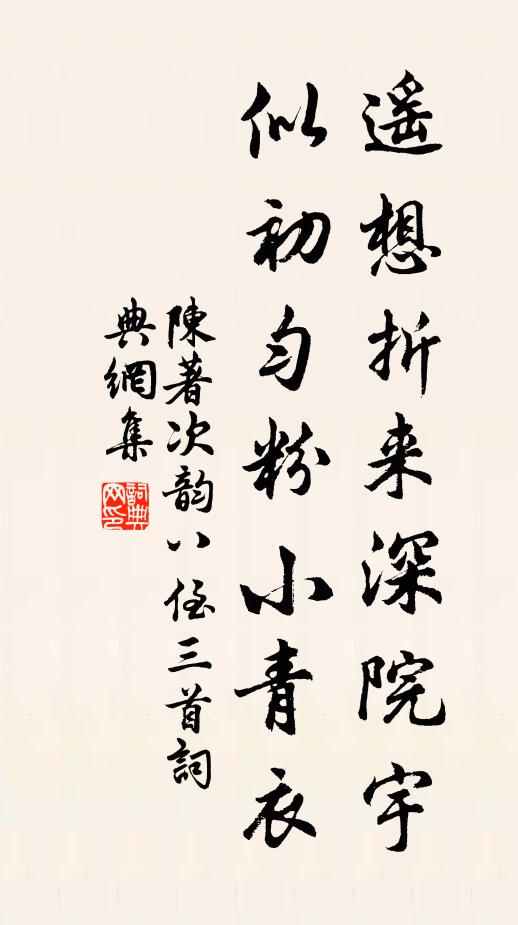 遥想折来深院宇
似初匀粉小青衣
陳著次韵八侄三首詞
典網集
詞典
网印